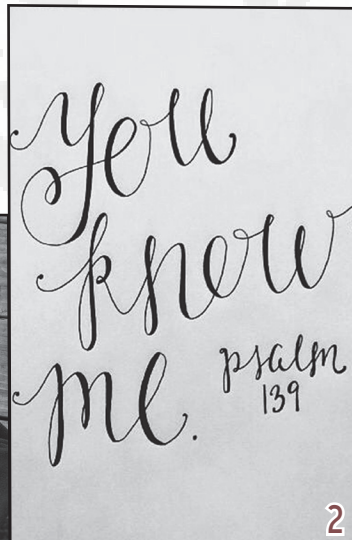 you
know
me.
psalm
139
2